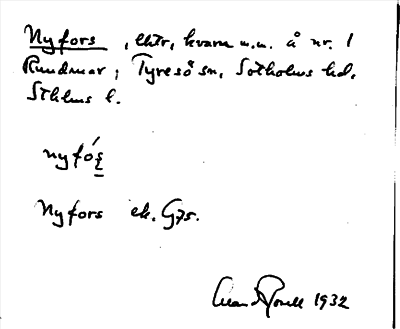 Nyfors, lhtr, kvarn m.m. å nr. 1
Rundmar, Tyresö sn, Sotholms hd,
Sthlms l.
nyfó
Nyfors ek. G75.
1932